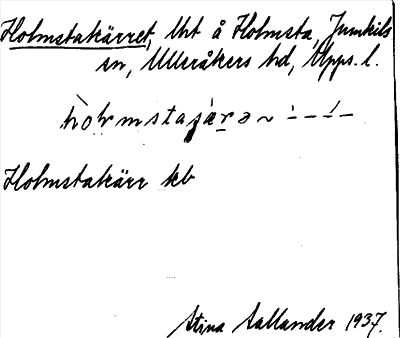 Holmstakärret, Uht å Holmsta, Jumkils
sn, Ulleråkers hd, Upps. l.
Holmstakärr kb
Stina Sallander 1937.